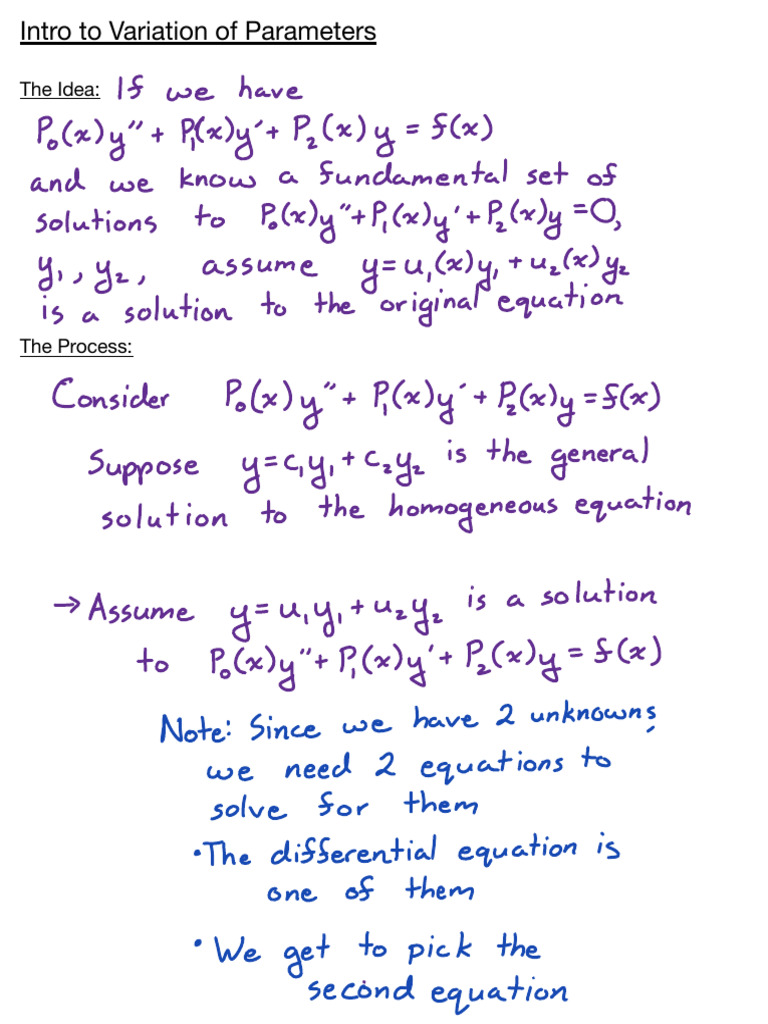 Intro to Variation of Parameters
The Idea: If we have
P₀(x)y″ + P₁(x)y′ + P₂(x)y = f(x)
and we know a fundamental set of
solutions to P₀(x)y″ + P₁(x)y′ + P₂(x)y = 0,
y₁, y₂, assume y = u₁(x)y₁ + u₂(x)y₂
is a solution to the original equation
The Process:
Consider P₀(x)y″ + P₁(x)y′ + P₂(x)y = f(x)
Suppose y = c₁y₁ + c₂y₂ is the general
solution to the homogeneous equation
→ Assume y = u₁y₁ + u₂y₂ is a solution
to P₀(x)y″ + P₁(x)y′ + P₂(x)y = f(x)
Note: Since we have 2 unknowns,
we need 2 equations to
solve for them
• The differential equation is
one of them
• We get to pick the
second equation